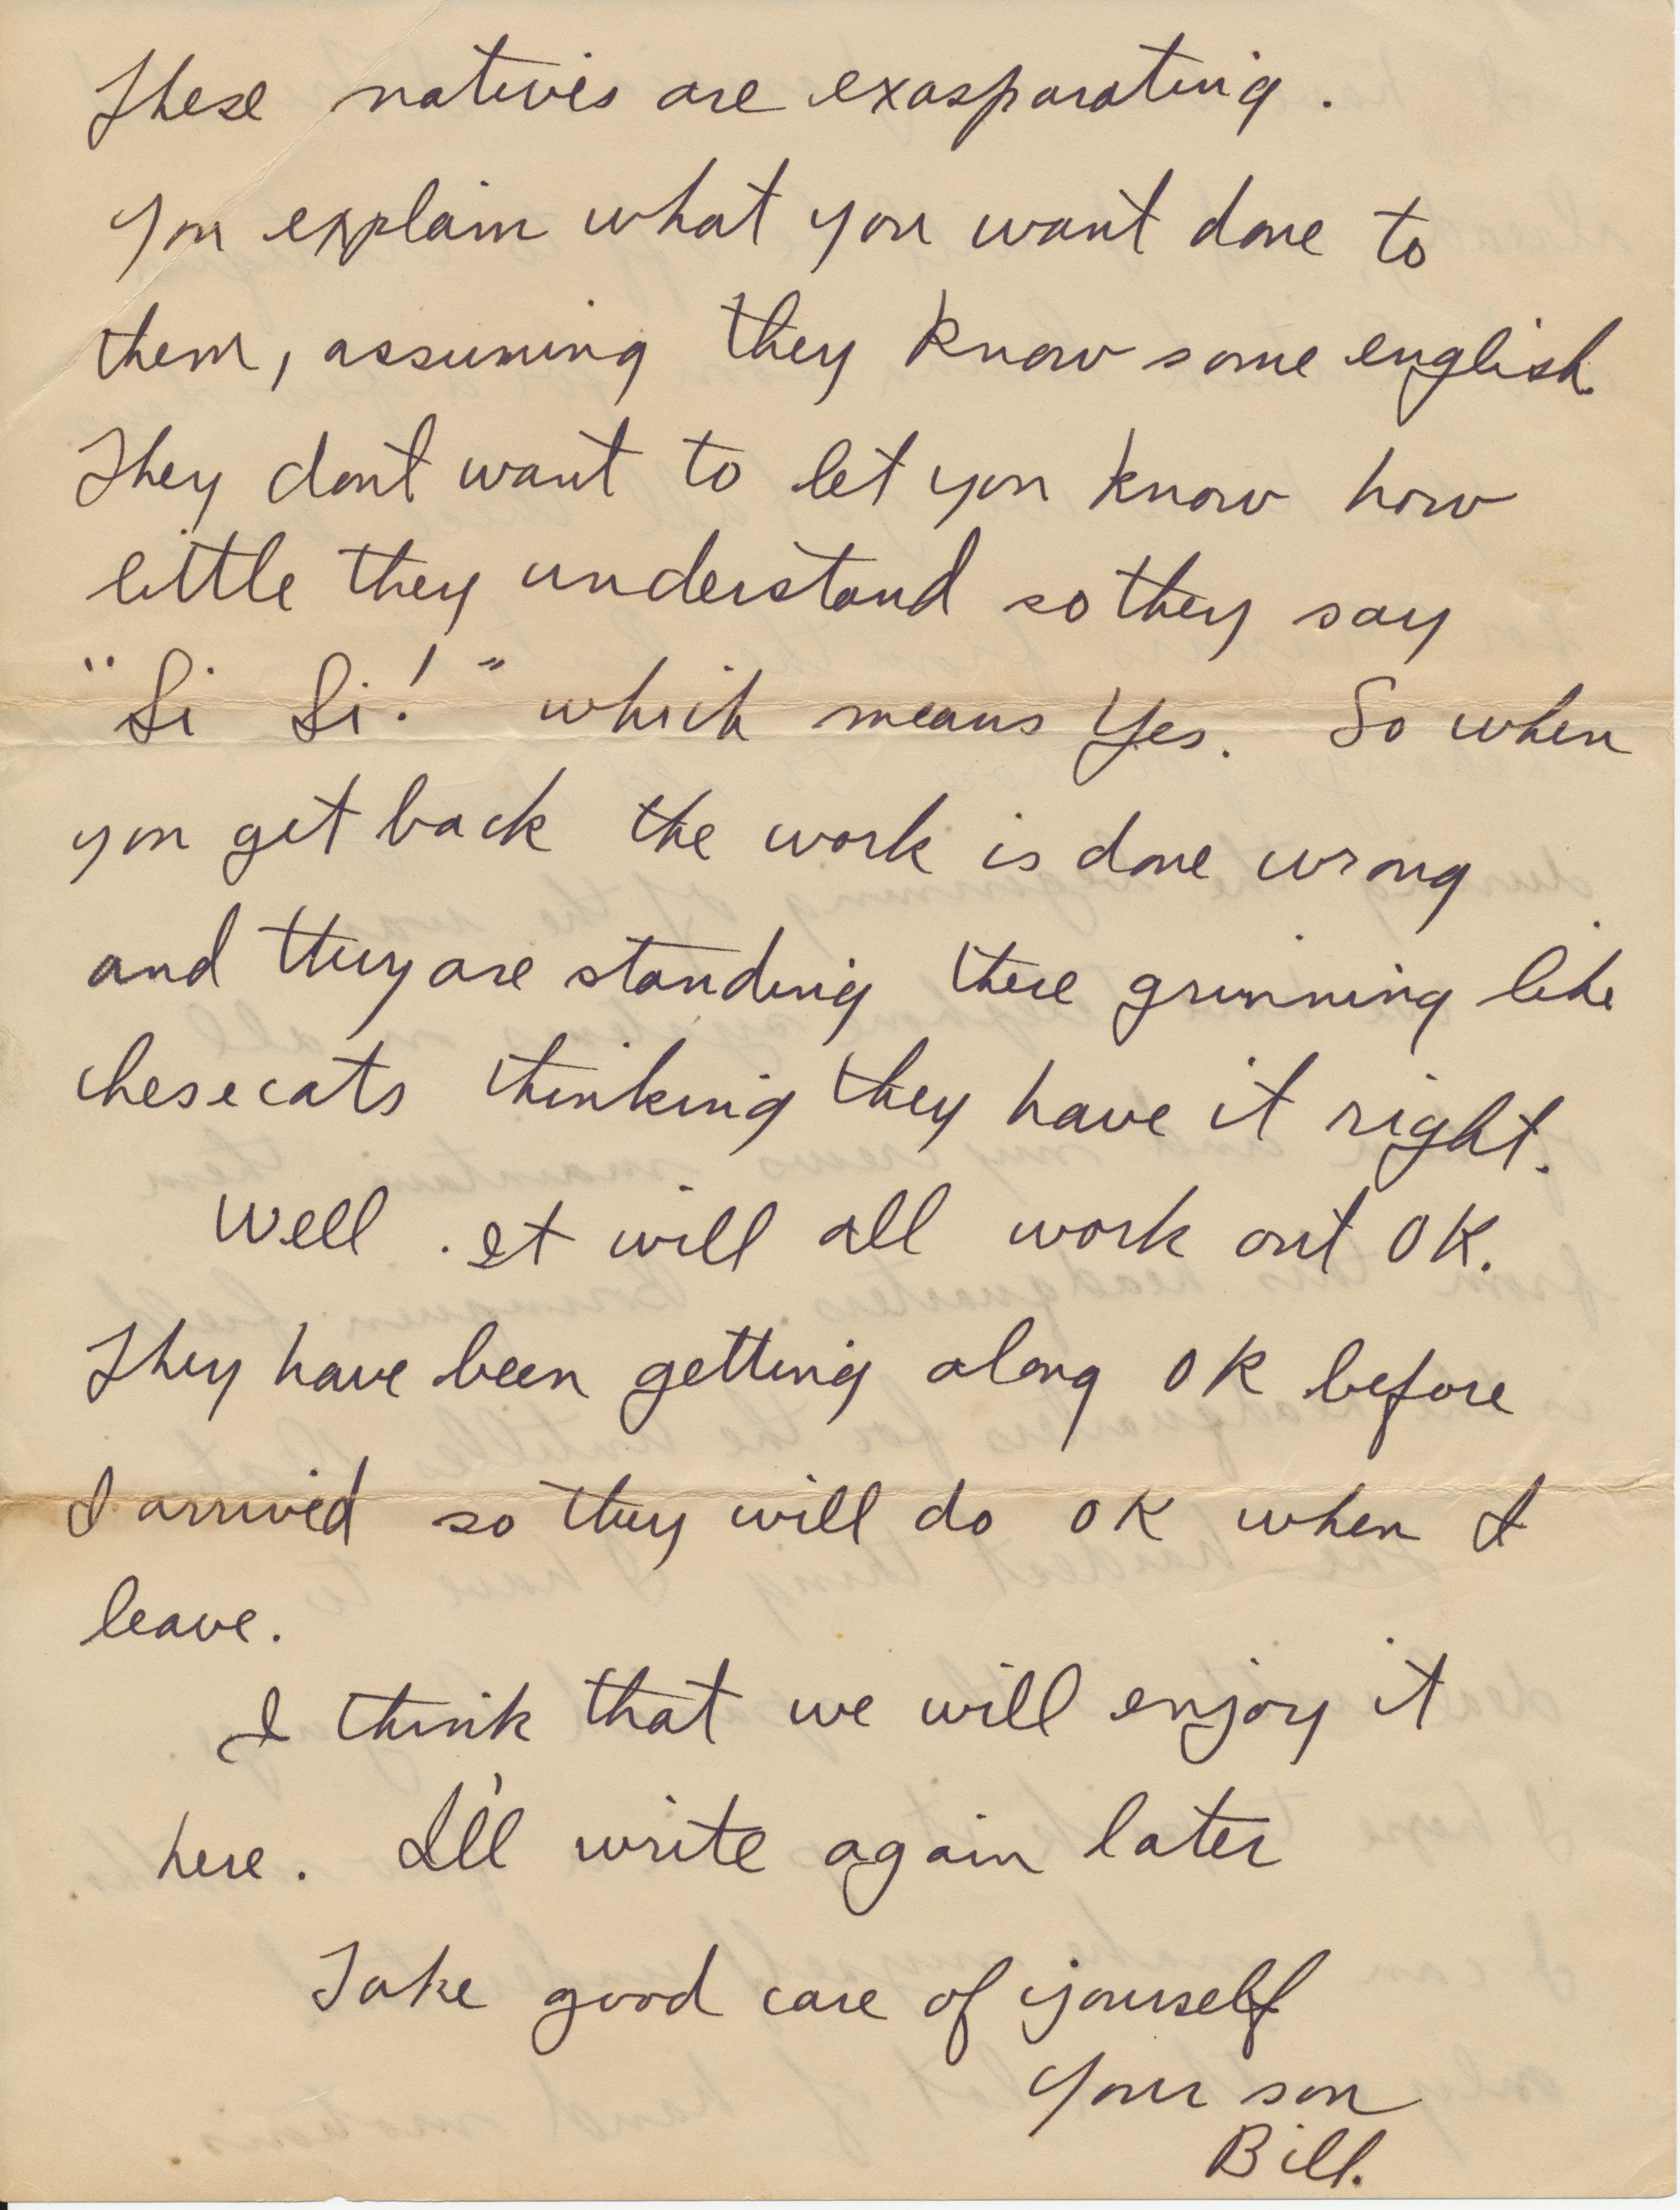 These natives are exasparating.
You explain what you want done to
them, assuming they know some english.
They dont want to let you know how
little they understand so they say
"Si Si!" which means Yes. So when
you get back the work is done wrong
and they are standing there grinning like
chesecats thinking they have it right.
Well. It will all work out OK.
They have been getting along OK before
I arrived so they will do OK when I
leave.
I think that we will enjoy it
here. I'll write again later
Take good care of yourself
Your son
Bill.